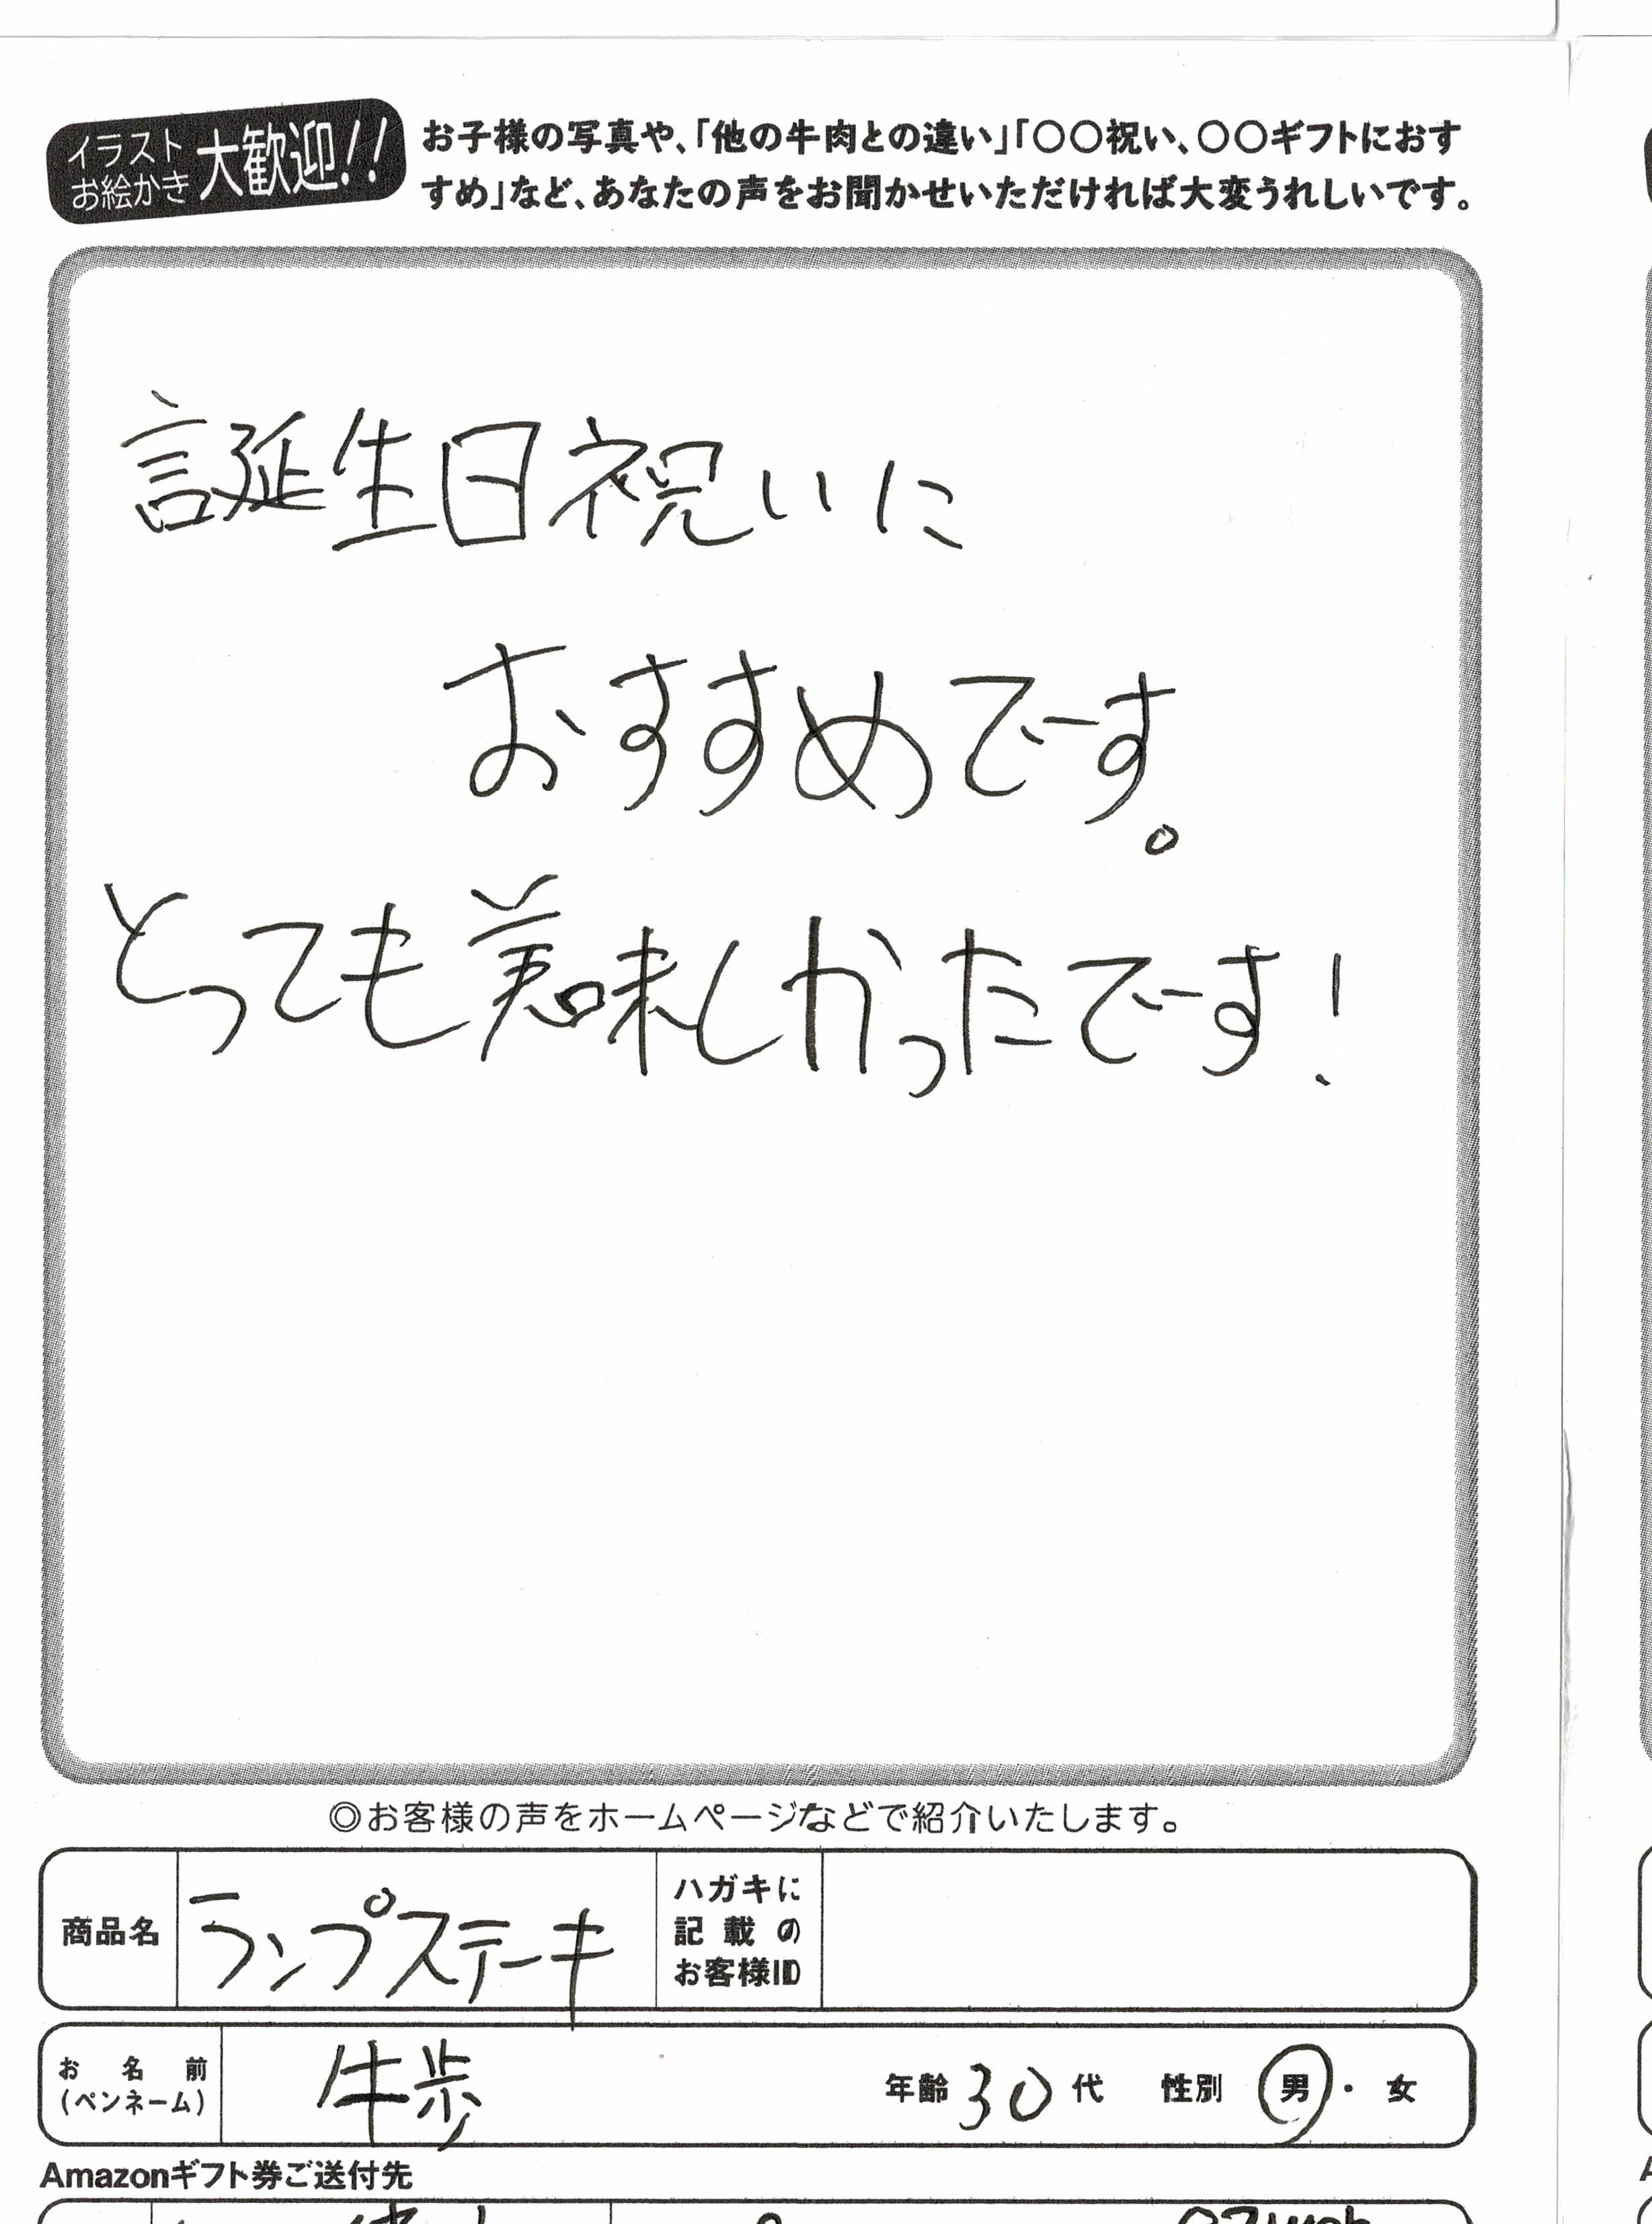 イラスト
お絵かき
大歓迎!!
お子様の写真や、「他の牛肉との違い」「〇〇祝い、〇〇ギフトにおす
すめ」など、あなたの声をお聞かせいただければ大変うれしいです。
誕生日祝いに
おすすめです。
とっても美味しかったです!
◎お客様の声をホームページなどで紹介いたします。
商品名 ランプステーキ
ハガキに
記載の
お客様ID
お名前
(ペンネーム)
牛歩 年齢 30代 性別 男・女
Amazonギフト券ご送付先